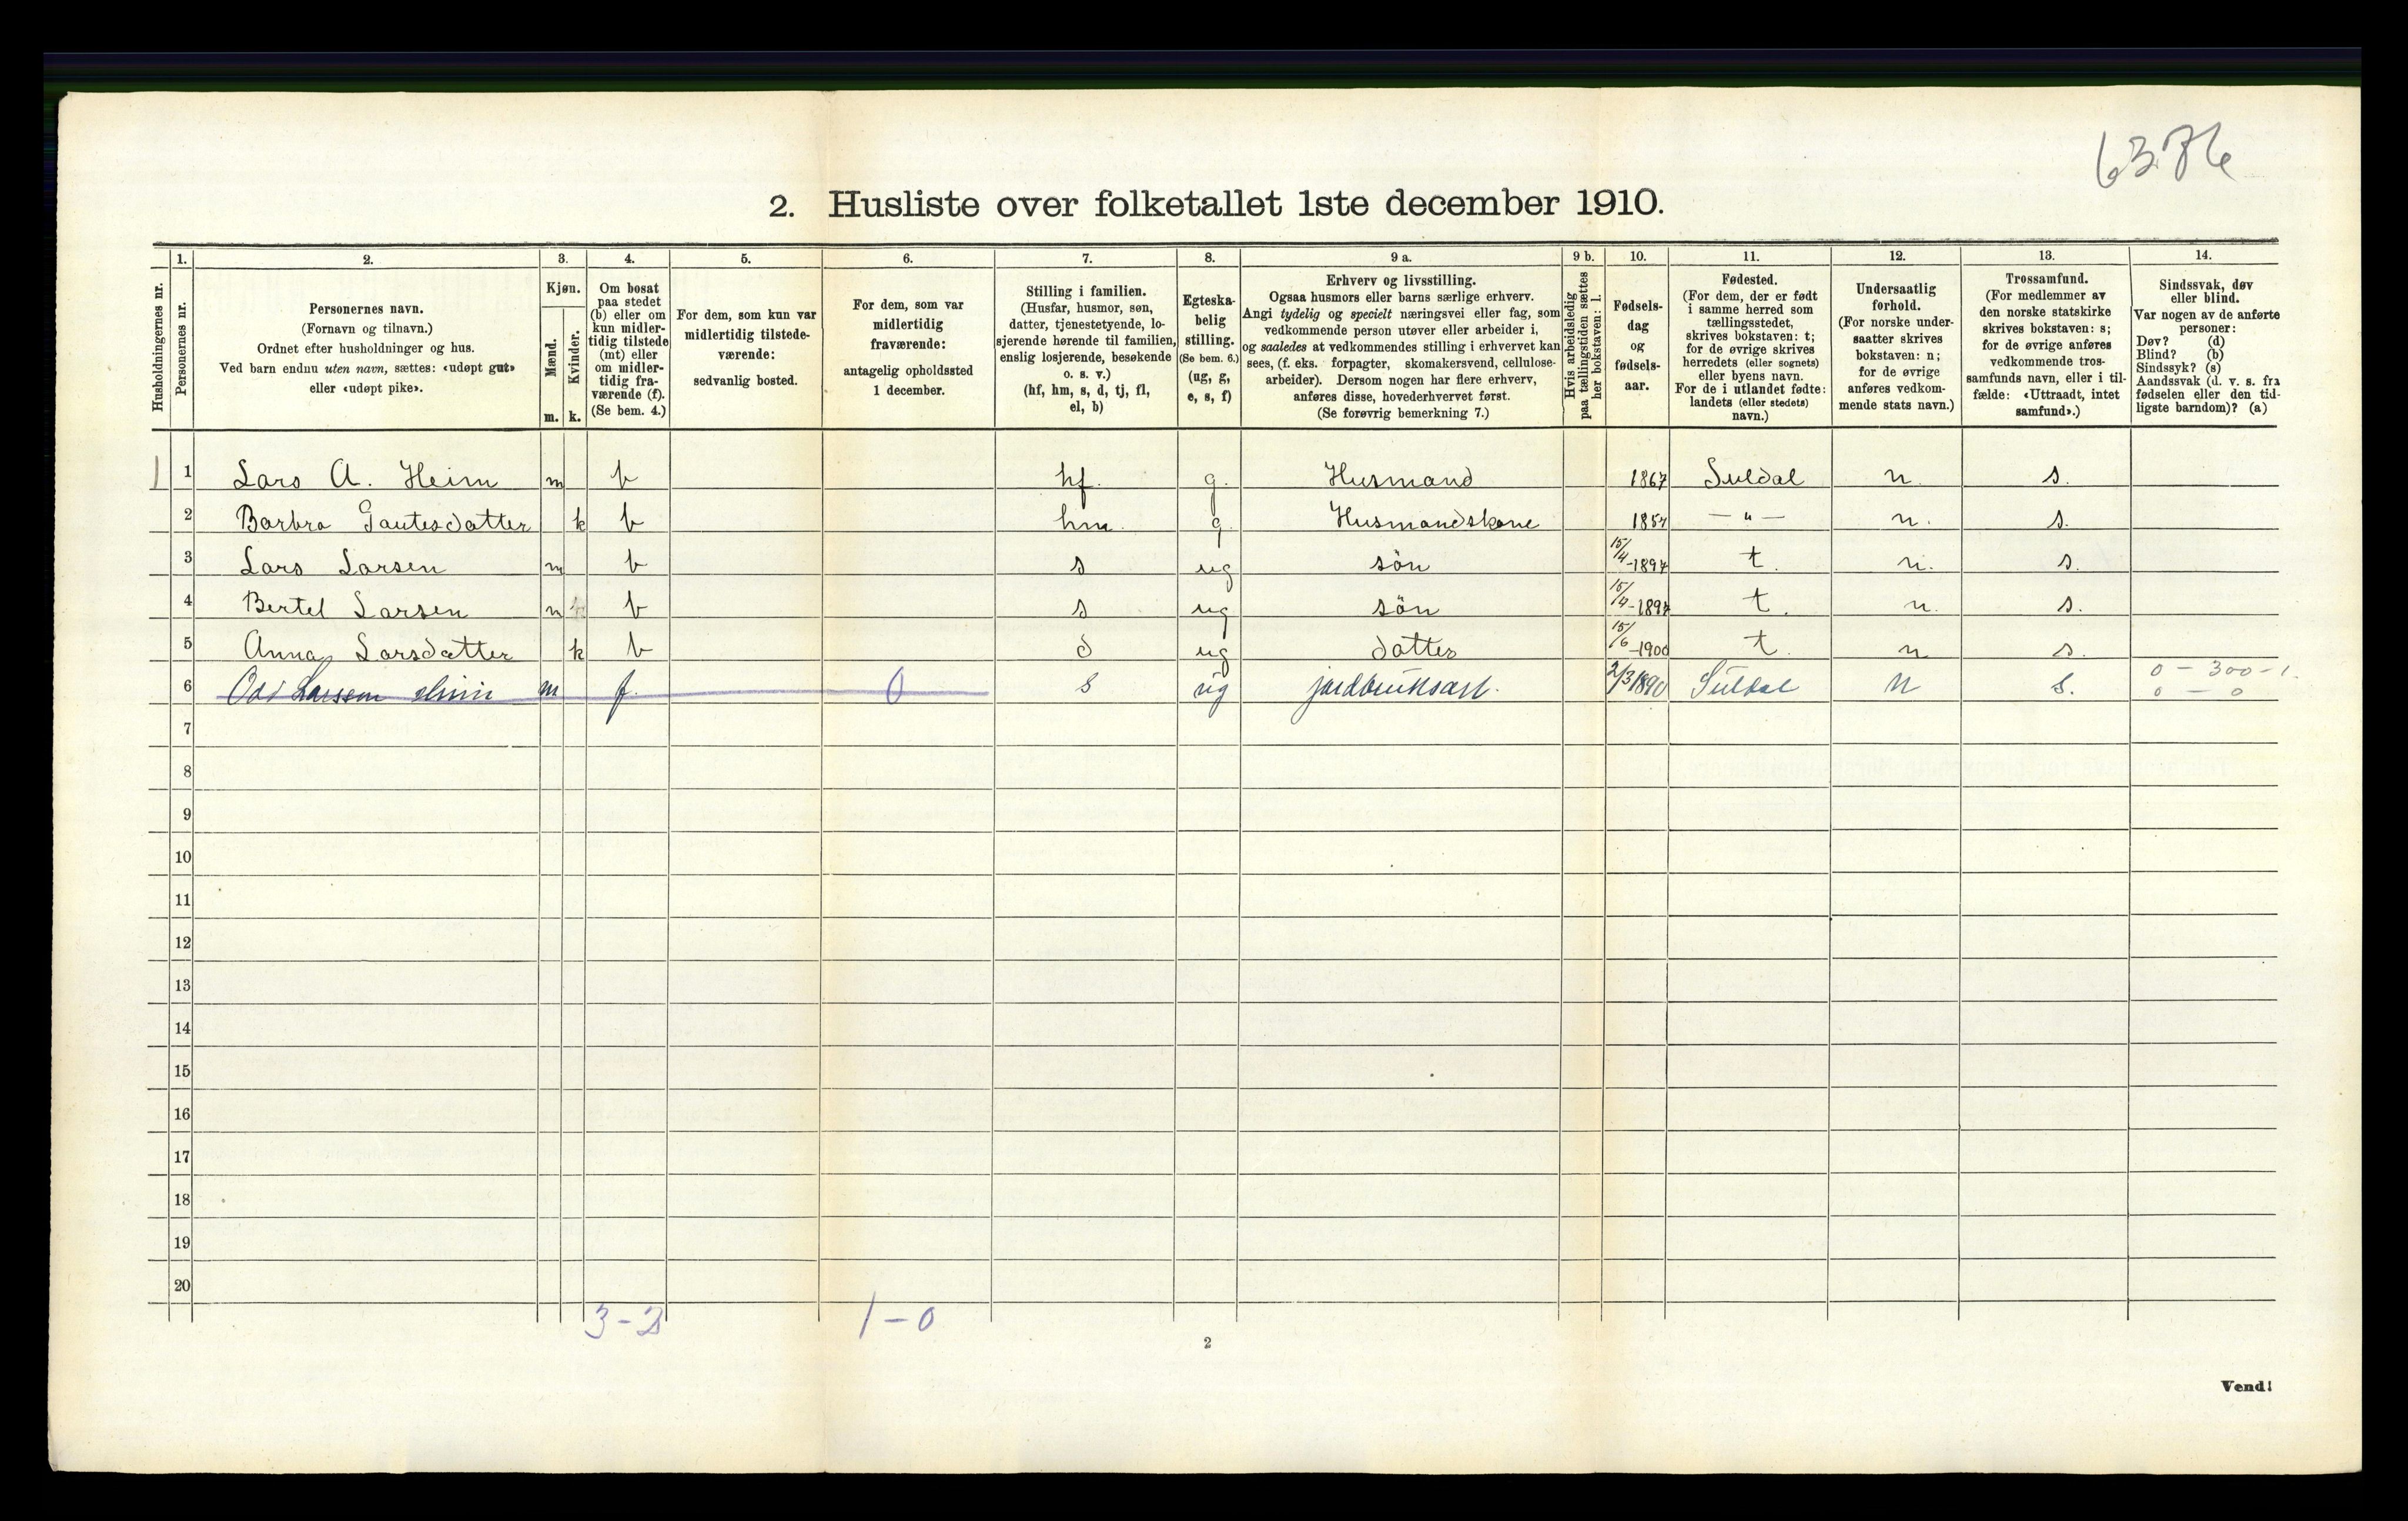 6376
2. Husliste over folketallet 1ste december 1910.
Husholdningernes nr.
1.
Personernes nr.
2.
Personernes navn.
(Fornavn og tilnavn.)
Ordnet efter husholdninger og hus.
Ved barn endnu uten navn, sættes: «udøpt gut»
eller «udøpt pike».
3.
Kjøn.
Mænd.
m.
Kvinder.
k.
4.
Om bosat
paa stedet
(b) eller om
kun midler-
tidig tilstede
(mt) eller
om midler-
tidig fra-
værende (f).
(Se bem. 4.)
5.
For dem, som kun var
midlertidig tilstede-
værende:
sedvanlig bosted.
6.
For dem, som var
midlertidig
fraværende:
antagelig opholdssted
1 december.
7.
Stilling i familien.
(Husfar, husmor, søn,
datter, tjenestetyende, lo-
sjerende hørende til familien,
enslig losjerende, besøkende
o. s. v.)
(hf, hm, s, d, tj, fl,
el, b)
8.
Egteska-
belig
stilling.
(Se bem. 6.)
(ug, g,
e, s, f)
9 a.
Erhverv og livsstilling.
Ogsaa husmors eller barns særlige erhverv.
Angi tydelig og specielt næringsvei eller fag, som
vedkommende person utøver eller arbeider i,
og saaledes at vedkommendes stilling i erhvervet kan
sees, (f. eks. forpagter, skomakersvend, cellulose-
arbeider). Dersom nogen har flere erhverv,
anføres disse, hovederhvervet først.
(Se forøvrig bemerkning 7.)
9 b.
Hvis arbeidsledig
paa tællingstiden sættes
her bokstaven: l.
10.
Fødsels-
dag
og
fødsels-
aar.
11.
Fødested.
(For dem, der er født
i samme herred som
tællingsstedet,
skrives bokstaven: t;
for de øvrige skrives
herredets (eller sognets)
eller byens navn.
For de i utlandet fødte:
landets (eller stedets)
navn.)
12.
Undersaatlig
forhold.
(For norske under-
saatter skrives
bokstaven: n;
for de øvrige
anføres vedkom-
mende stats navn.)
13.
Trossamfund.
(For medlemmer av
den norske statskirke
skrives bokstaven: s;
for de øvrige anføres
vedkommende tros-
samfunds navn, eller i til-
fælde: «Uttraadt, intet
samfund».)
14.
Sindssvak, døv
eller blind.
Var nogen av de anførte
personer:
Døv? (d)
Blind? (b)
Sindssyk? (s)
Aandssvak (d. v. s. fra
fødselen eller den tid-
ligste barndom)? (a)
1 1 Lars A. Heim m b hf. g. Husmand 1867 Suldal n. s.
2 Barbra Gautesdatter k b hm. g. Husmandskone 1854 — " — n. s.
3 Lars Larsen m b s ug søn 15/4-1897 t. n. s.
4 Bertel Larsen m b s ug søn 15/4-1897 t. n. s.
5 Anna Larsdatter k b d ug datter 15/6-1900 t. n s.
6 Odd Larssen m f. 0 s ug 2/3 1890 Suldal n s. 0 - 300 - 1.
0 - 0
7
8
9
10
11
12
13
14
15
16
17
18
19
20
3 - 2 1 - 0
2
Vend!